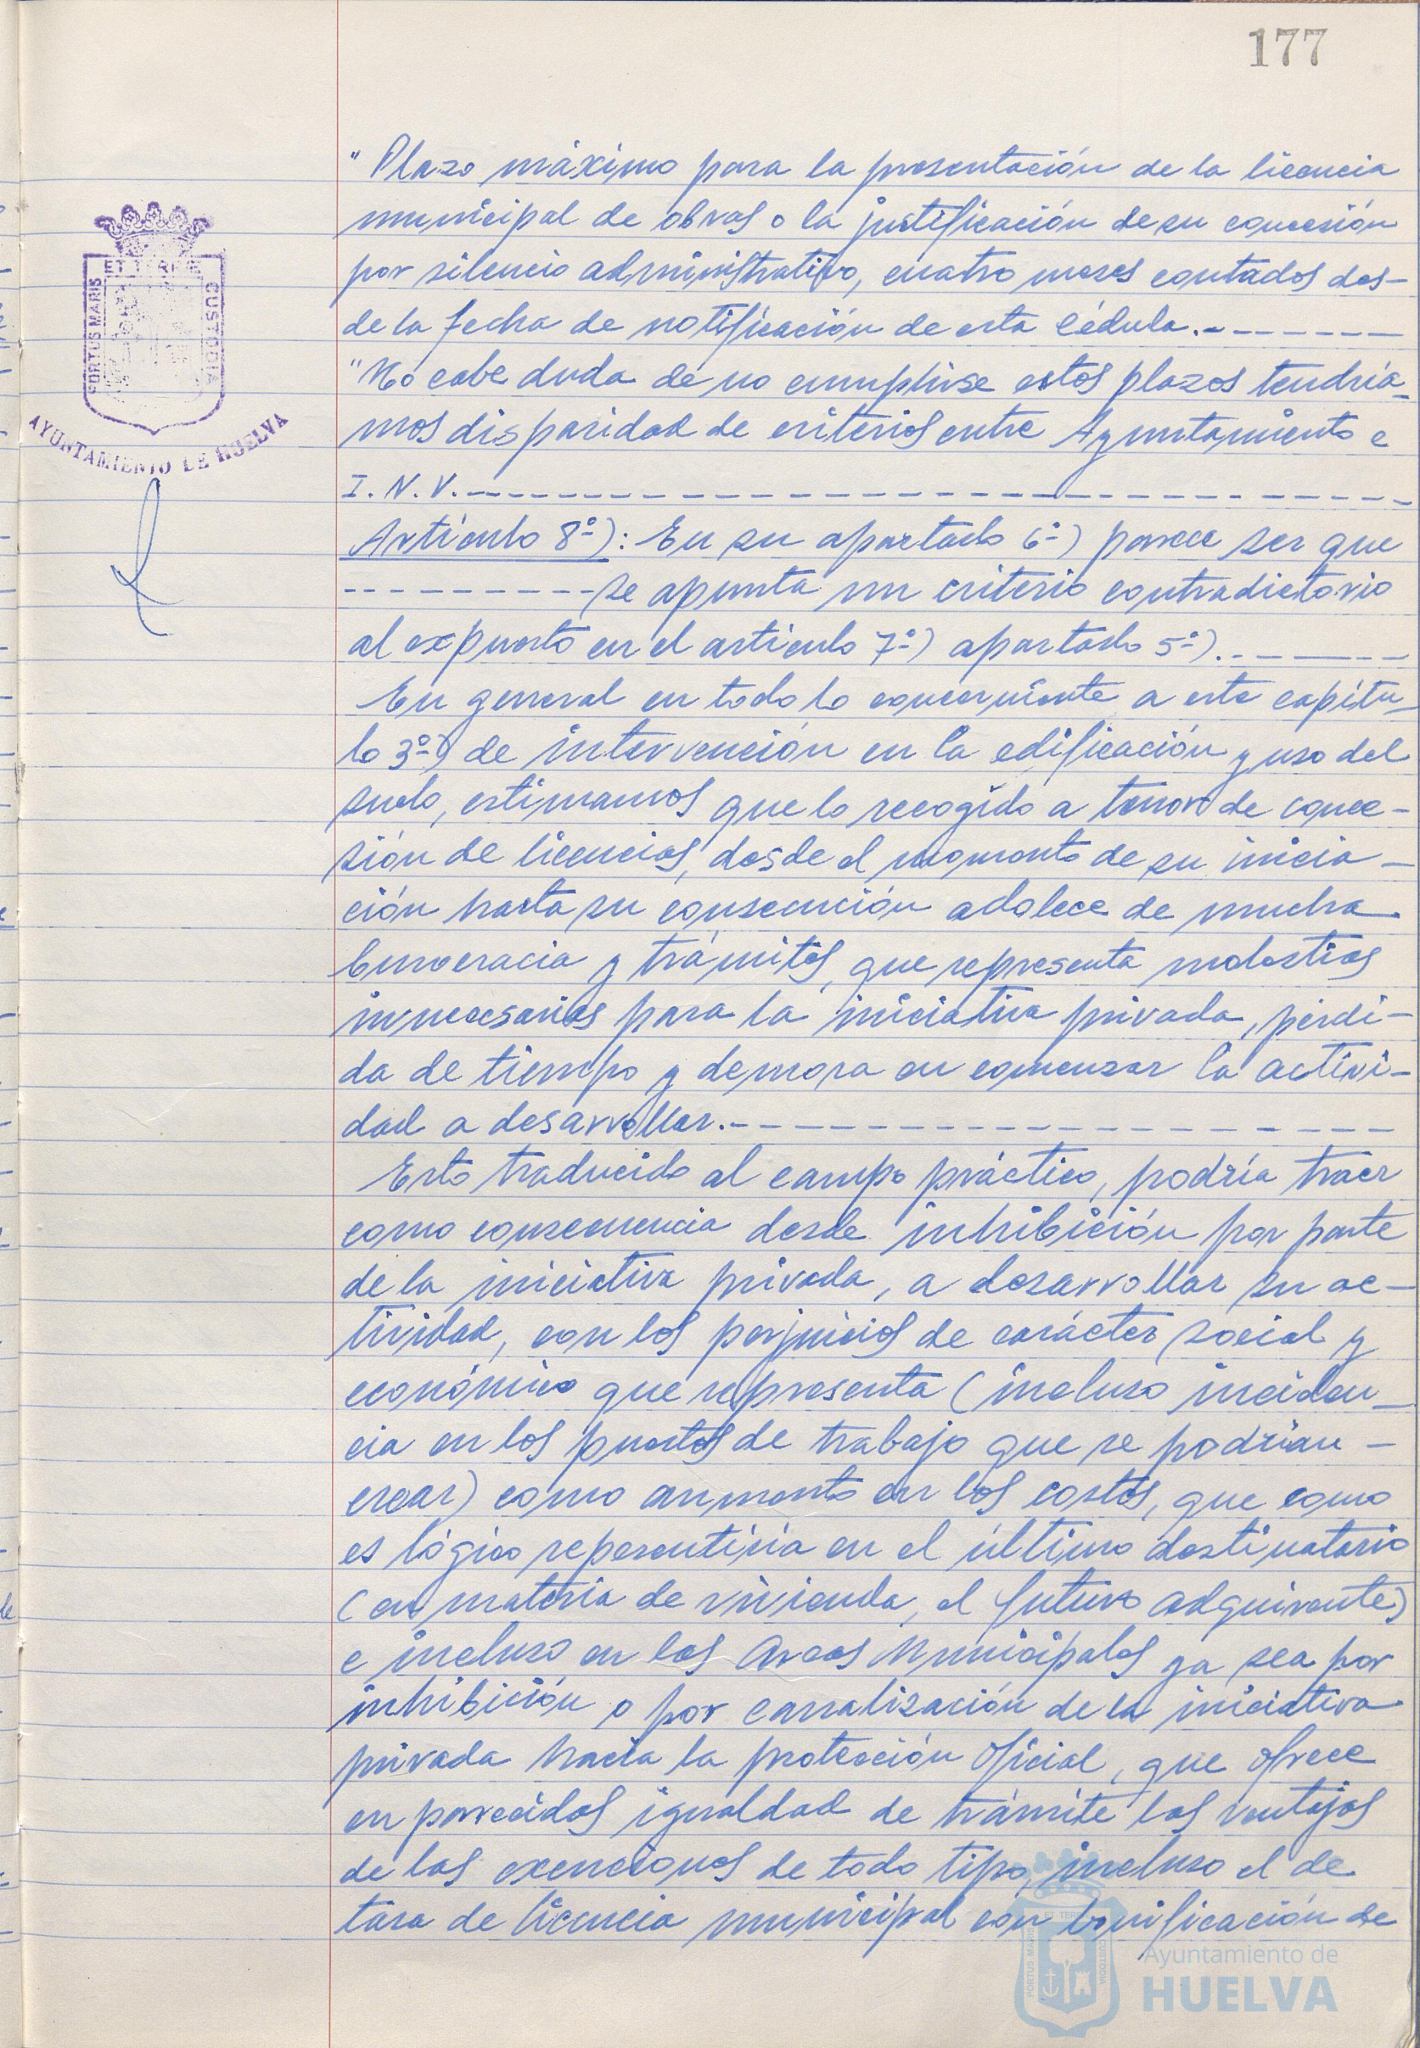 177
"Plazo máximo para la presentación de la licencia
municipal de obras o la justificación de su concesión
por silencio administrativo, cuatro meses contados des-
de la fecha de notificación de esta Cédula.--------
"No cabe duda de no cumplirse estos plazos tendría-
mos disparidad de criterios entre Ayuntamiento e
I.N.V.--------------------
Artículo 8º): En su apartado 6º) parece ser que
----------se apunta un criterio contradictorio
al expuesto en el articulo 7º) apartado 5º).------
En general en todo lo concerniente a este capítu-
lo 3º) de intervención en la edificación y uso del
suelo, estimamos que lo recogido a tenor de conce-
sión de licencias, desde el momento de su inicia-
ción hasta su consecución adolece de mucha
burocracia y trámites, que representa molestias
innecesarias para la iniciativa privada, pérdi-
da de tiempo y demora en comenzar la activi-
dad a desarrollar.--------------------
Esto traducido al campo práctico, podría traer
como consecuencia desde inhibición por parte
de la iniciativa privada, a desarrollar su ac-
tividad, con los perjuicios de carácter social y
económico que representa (incluso inciden-
cia en los puestos de trabajo que se podrían-
crear) como aumento en los costes, que como
es lógico repercutiría en el último destinatario
(en materia de vivienda, el futuro adquirente)
e incluso en las Arcas Municipales ya sea por
inhibición o por canalización de la iniciativa
privada hacia la protección oficial, que ofrece
en parecidas igualdad de trámite las ventajas
de las exenciones de todo tipo, incluso el de
tasa de licencia municipal con bonificación de
PORTUS MARIS
ET TERRE
CUSTODIA
AYUNTAMIENTO DE HUELVA
Ayuntamiento de
HUELVA